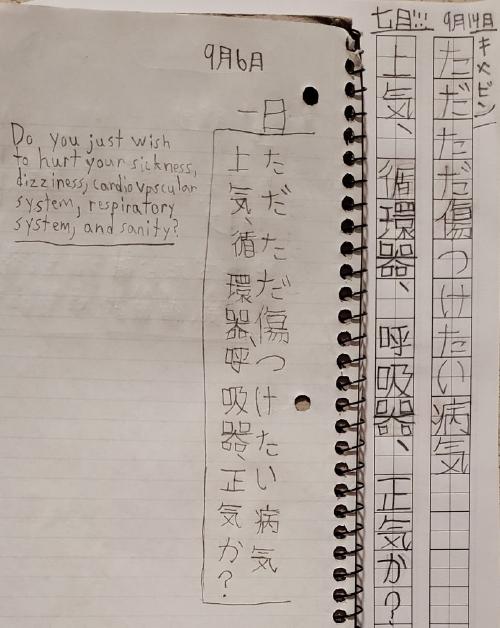 9月6日
一日
Do, you just wish
to hurt your sickness,
dizziness, cardiovascular
system, respiratory
system, and sanity?
ただただ傷つけたい病気
上気、循環器、呼吸器、正気か?
七日!!!
9月14日
ただただ傷つけたい病気
上気、循環器、呼吸器、正気か?